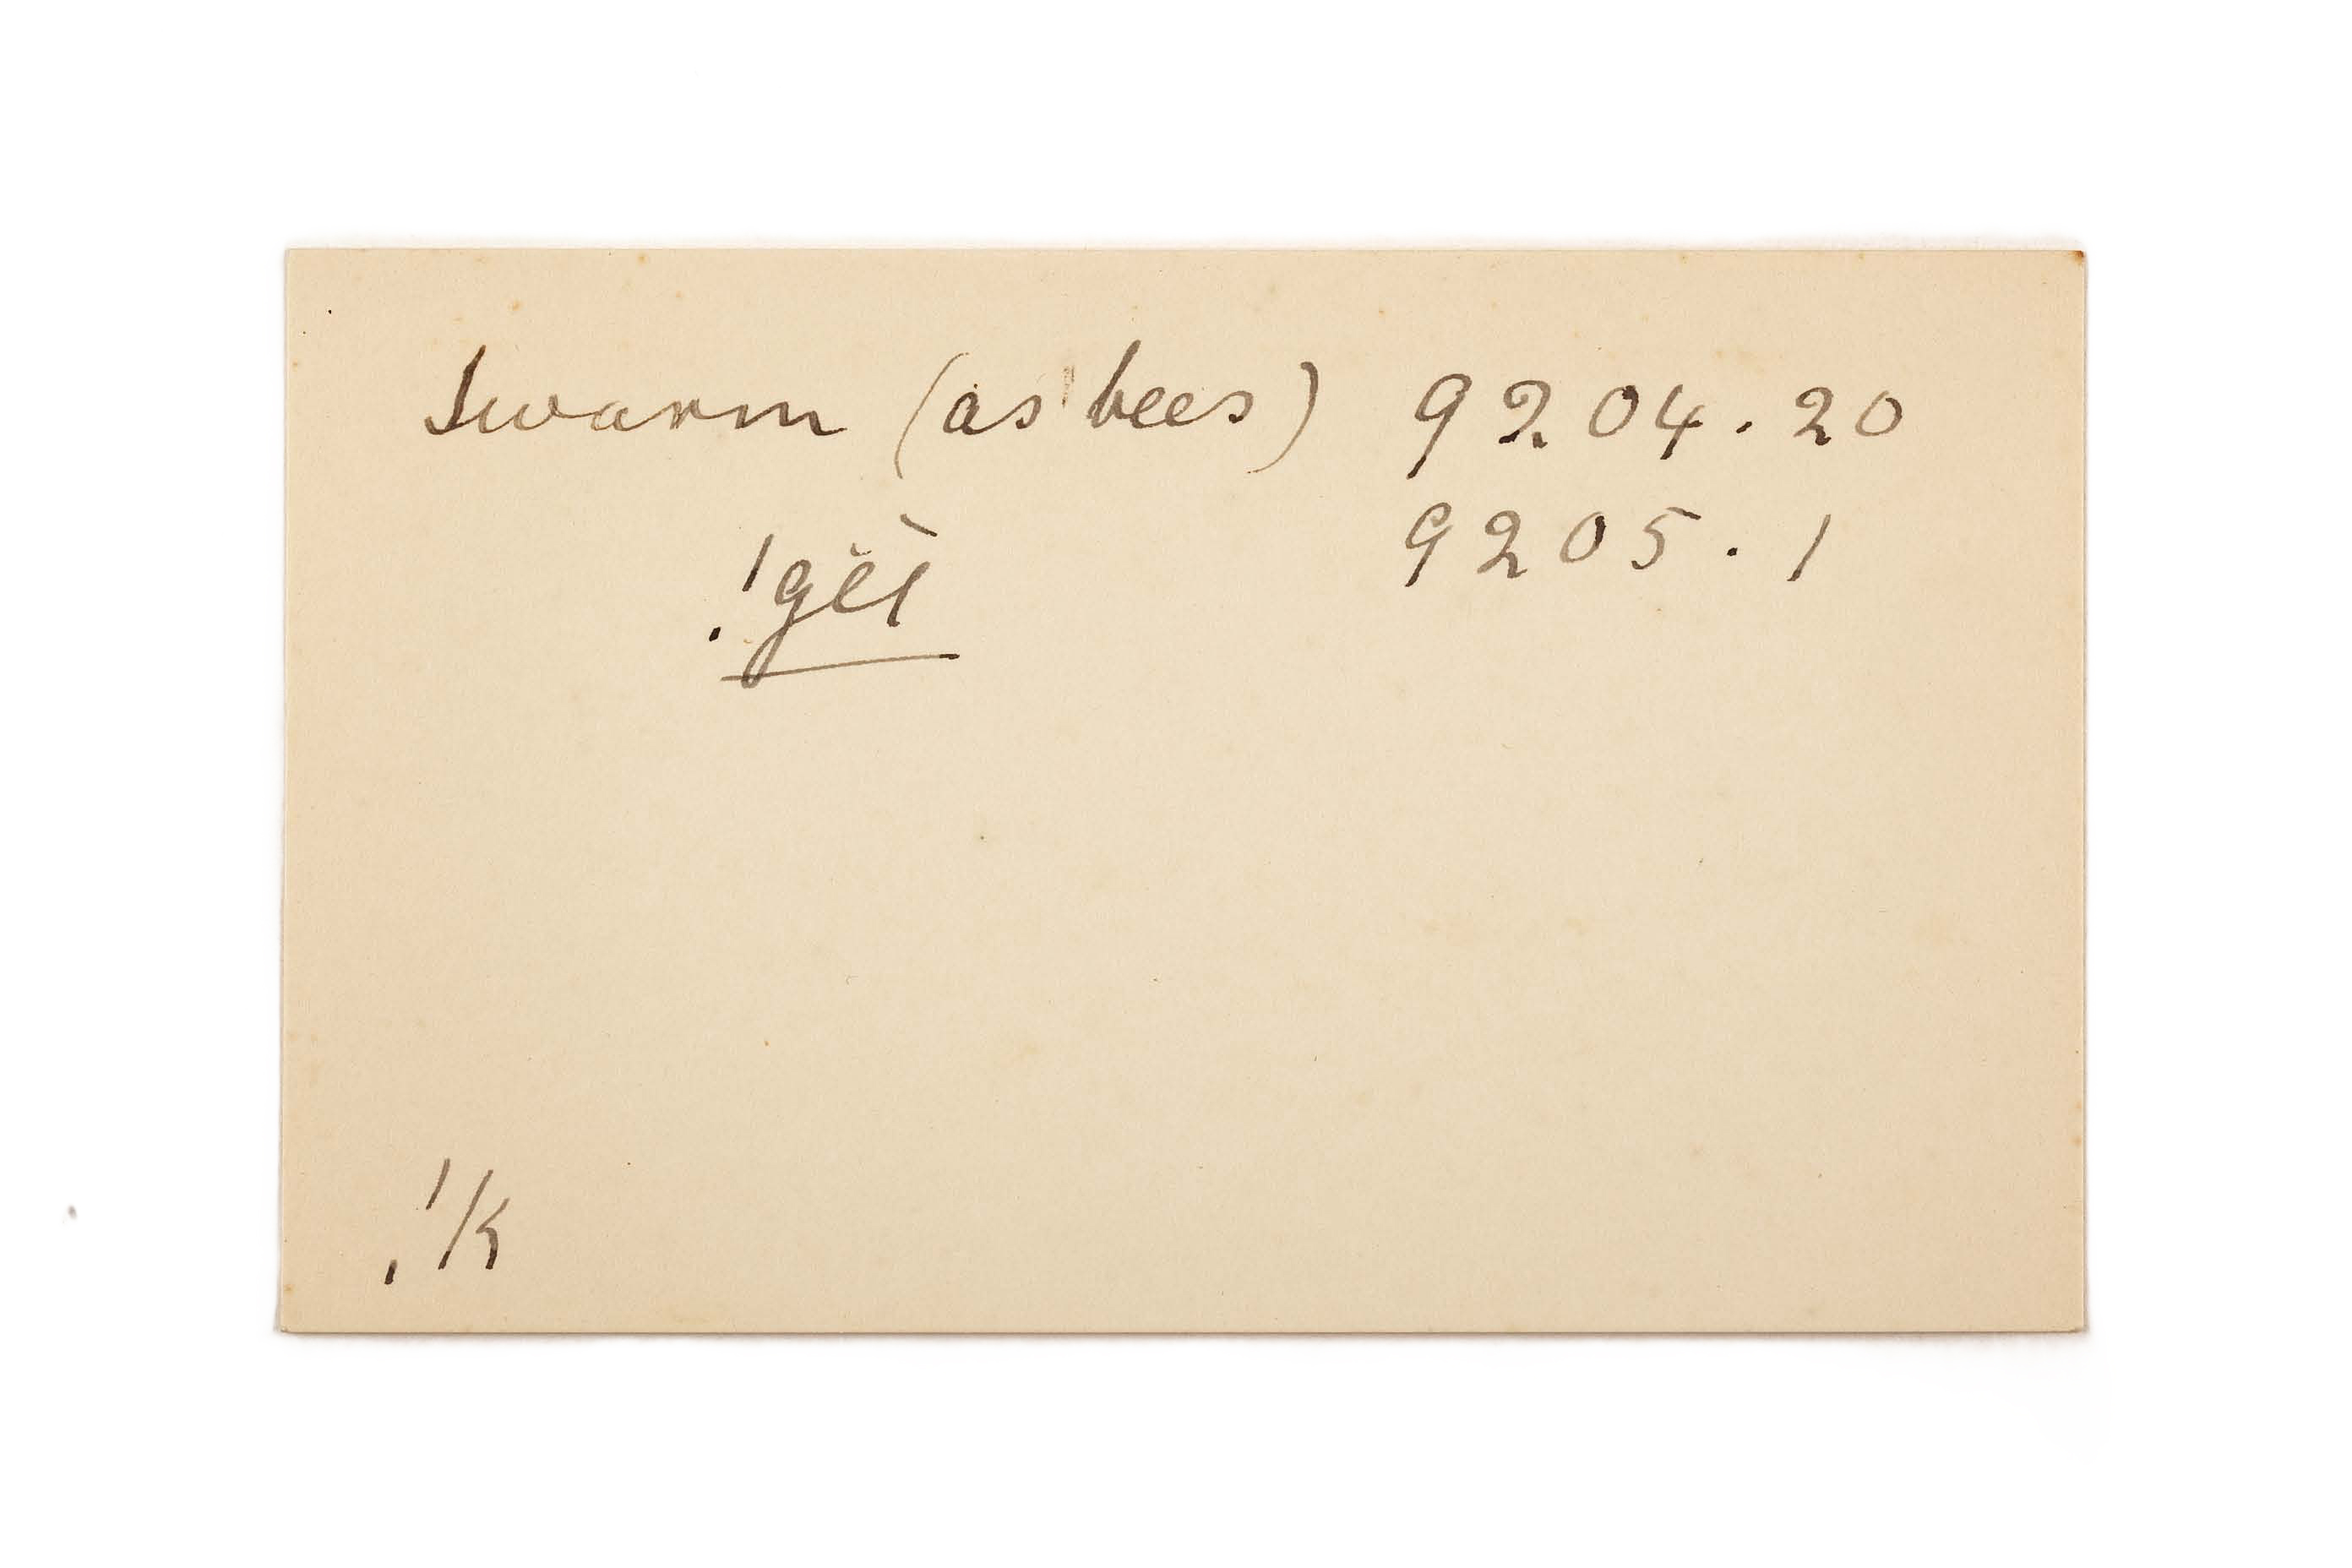 Swarm (as bees) 9204.20
9205.1
ˌˈgĕĭ̀
ˌˈK